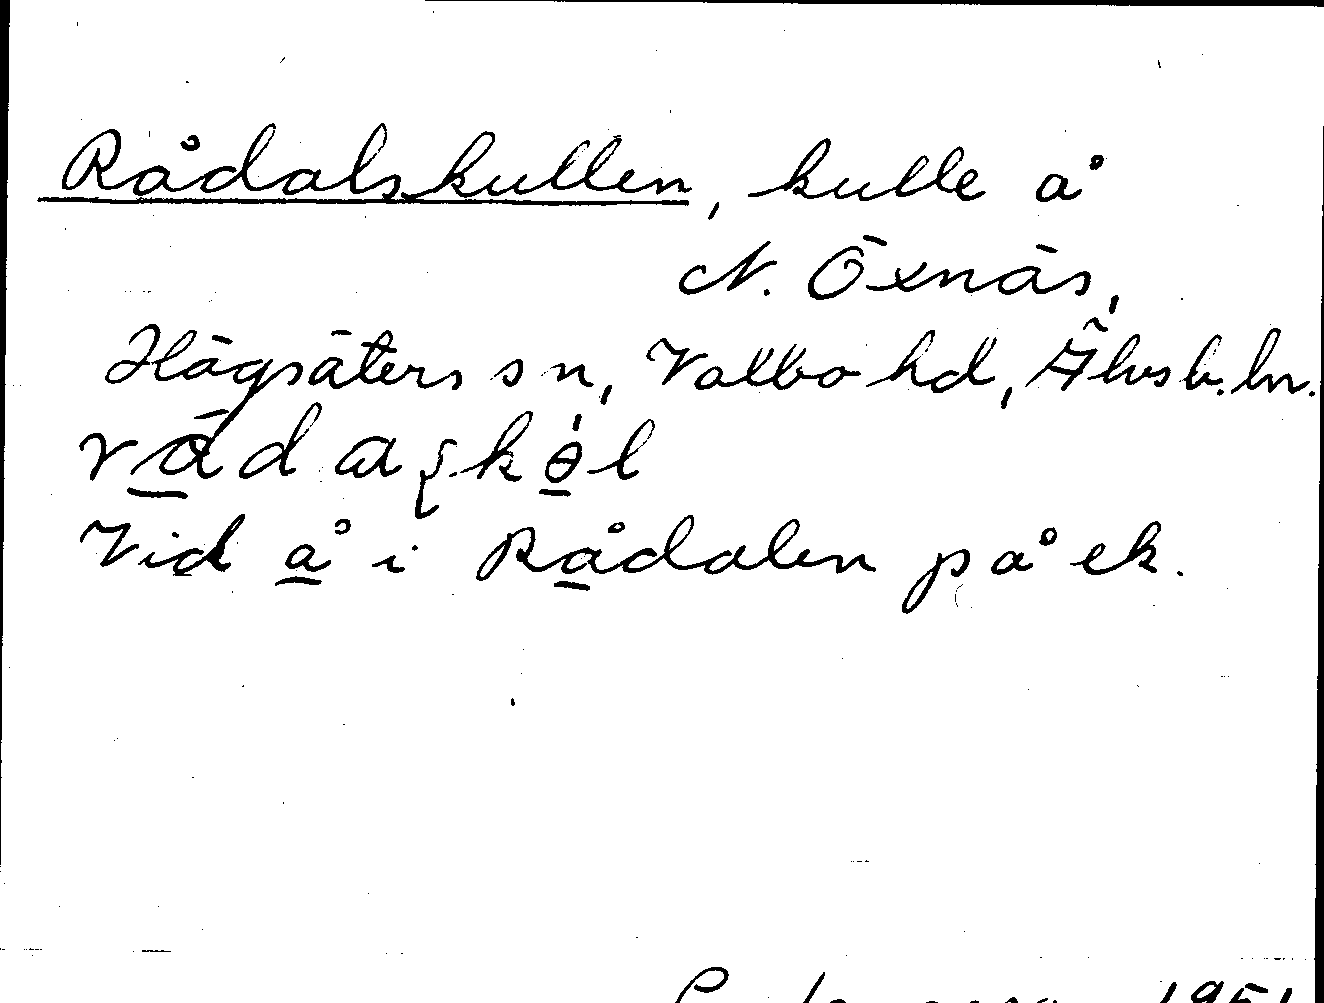 Rådalskullen, kulle å
N. Öxnäs,
Högsäters sn, Valbo hd, Älvsb. ln.
Vid å i Rådalen på ek.
1951